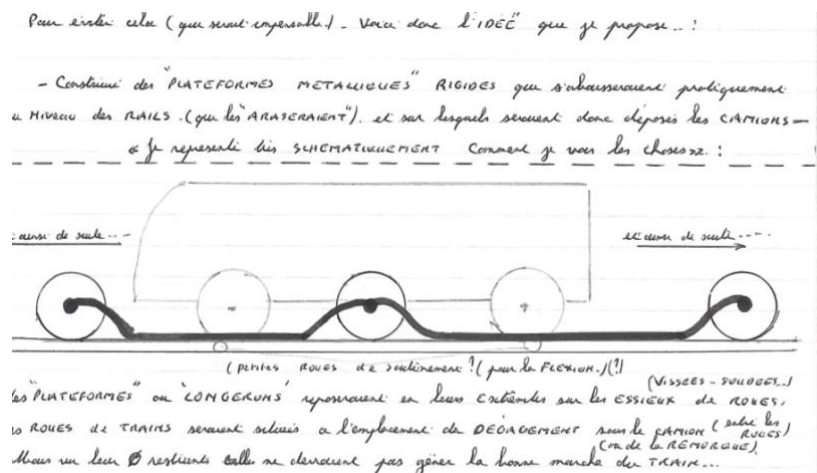 Pour éviter cela (que serait impensable!) - Voici donc l'IDÉE que je propose...!
- Construire des "PLATEFORMES METALLIQUES" RIGIDES que s'abaisseraient pratiquement
u NIVEAU des RAILS. (que les "ARASERAIENT"). et sur lesquels seraient donc déposés les CAMIONS -
« Je représente très SCHEMATIQUEMENT Comment je vois les choses ». :
et ainsi de suite ----
et ainsi de suite ----
(petites ROUES de soutènement? (pour la FLEXION.)(!)
(VISSEES - SOUDEES...)
es "PLATEFORMES" ou 'LONGERONS' reposeraient en leurs extrêmités sur les ESSIEUX de ROUES.
s ROUES de TRAINS seraient situés a l'emplacement de DÉGAGEMENT sous le CAMION (entre les ROUES)
(ou de la REMORQUE)
vu leur Ø restreint elles ne devraient pas gêner la bonne marche du TRAIN...